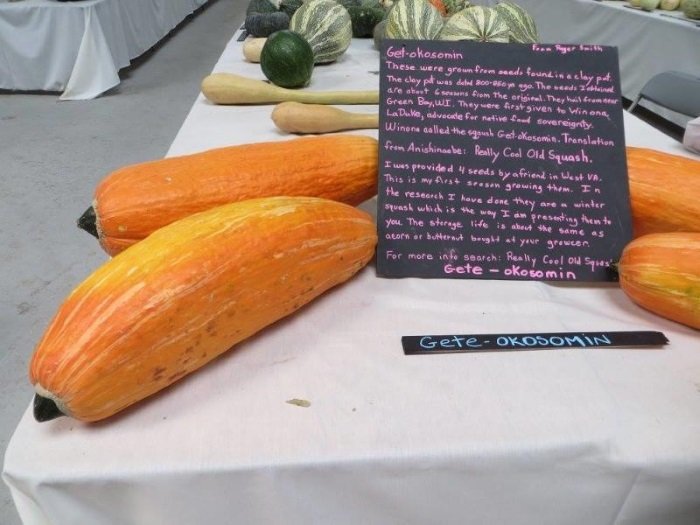 Get-okosomin From Roger Smith
These were grown from seeds found in a clay pot.
The clay pot was dated 800-850 yo ago. The seeds I obtained
are about 6 seasons from the original. They hail from near
Green Bay, WI. They were first given to Winona
LaDuke, advocate for native food sovereignty.
Winona called the squash Get-okosomin. Translation
from Anishinaabe: Really Cool Old Squash.
I was provided 4 seeds by a friend in West VA.
This is my first season growing them. In
the research I have done they are a winter
squash which is the way I am presenting them to
you. The storage life is about the same as
acorn or butternut bought at your growcer.
For more info search: Really Cool Old Squas
Gete - okosomin
Gete-okosomin